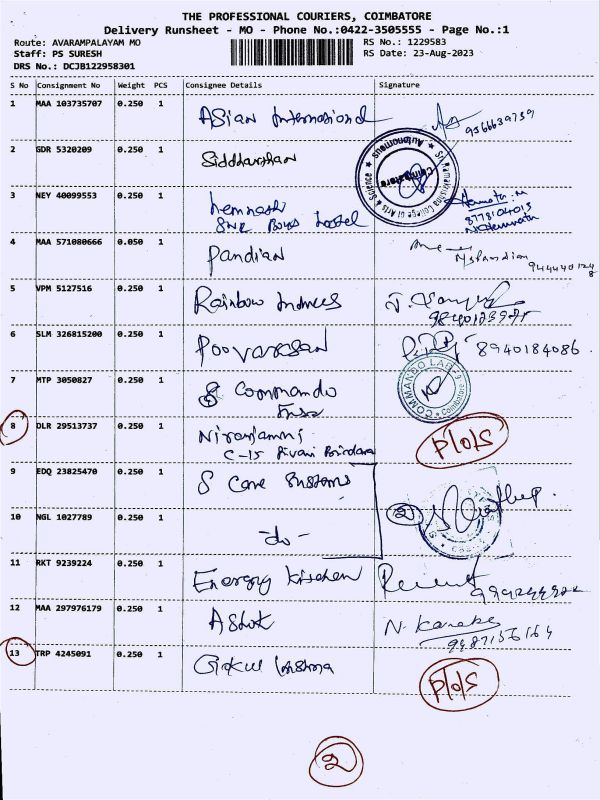 THE PROFESSIONAL COURIERS, COIMBATORE
Delivery Runsheet - MO - Phone No.:0422-3505555 - Page No.:1
Route: AVARAMPALAYAM MO RS No.: 1229583
Staff: PS SURESH RS Date: 23-Aug-2023
DRS No.: DCJB122958301
S No Consignment No Weight PCS Consignee Details Signature
1 MAA 103735707 0.250 1 Asian International
9566639759
2 GDR 5320209 0.250 1 Siddharshan
Sri Ramakrishna College of Arts & Science
Autonomous
Coimbatore
3 NEY 40099553 0.250 1
SNR Boys hostel
8778104015
4 MAA 571080666 0.050 1 Pandian
5 VPM 5127516 0.250 1 Rainbow
6 SLM 326815200 0.250 1 Poovarasan 8940184086.
7 MTP 3050827 0.250 1 Commando
COMMANDO
Coimbatore
8 DLR 29513737 0.250 1 Niranjanni P/O/S
C-15
9 EDQ 23825470 0.250 1 S Care Systems
2
10 NGL 1027789 0.250 1 -do-
11 RKT 9239224 0.250 1 Energy Kitchen
12 MAA 297976179 0.250 1 Ashok N.
9487156164
13 TRP 4245091 0.250 1 Gokul P/O/S
2